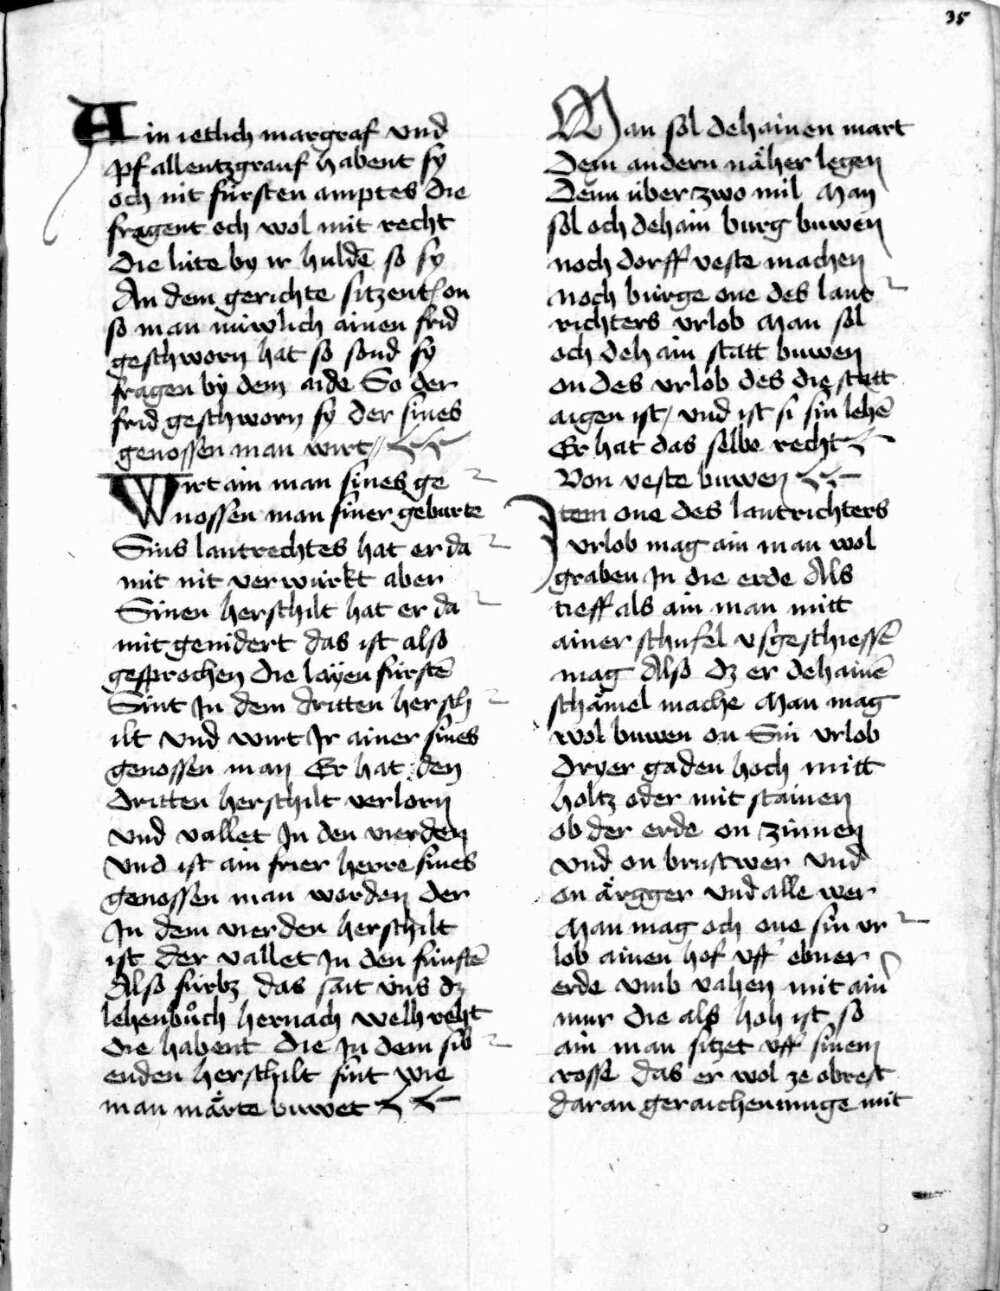 35
Ain ietlich margraf vnd
Pfallentzgrauf habent sy
och nit fürsten amptes die
fragent och wol mit recht
die lüte by ir huldē so sy
An dem gerichte sitzent on
so man nüwlich ainen frid
geschworn hat so sond sy
fragen by dem aide So der
frid geschworn sy der sines
genossen man wirt
Wirt ain man sines ge
nossen man siner geburte
Sins lantrechtes hat er da
mit nit verwürkt aber
Sinen herschilt hat er da
mit genidert das ist also
gesprochen die layen fürstē
Sint In dem dritten hersch
ilt vnd wirt Ir ainer sines
genossen man Er hat den
dritten herschilt verlorn
vnd vallet In den vierden
vnd ist ain frier herre sines
genossen man worden der
In dem vierden herschilt
ist der vallet In den fünftē
Also fürbz das sait vns dz
lehenbůch hernach welh reht
die habent die In dem sib
enden herschilt sint wie
man märte buwet
Man sol dehainen mart
dem andern näher legen
denn über zwo mil Man
sol och dehain burg buwen
noch dorff veste machen
noch bürge one des lant
richters vrlob Man sol
och dehain statt buwen
on des vrlob des die statt
aigen ist / vnd ist si sin lehē
Er hat das selbe recht
Von veste buwen
Item one des lantrichters
vrlob mag ain man wol
graben In die erde Als
tieff als ain man mitt
ainer schufel vsgeschiessē
mag Also dz er dehainē
schämel mache Man mag
wol buwen on Sin vrlob
dryer gaden hoch mitt
holtz oder mit stainen
ob der erde on zinnen
vnd on brustwer vnd
on ärgger vnd alle wer
Man mag och one sin vr
lob ainen hof vff ebner
erde vmb vahen mit ain̄
mur die als hoh ist so
ain man sitzet vff sinem
rosse das er wol ze obrest
daran geraichen muge mit